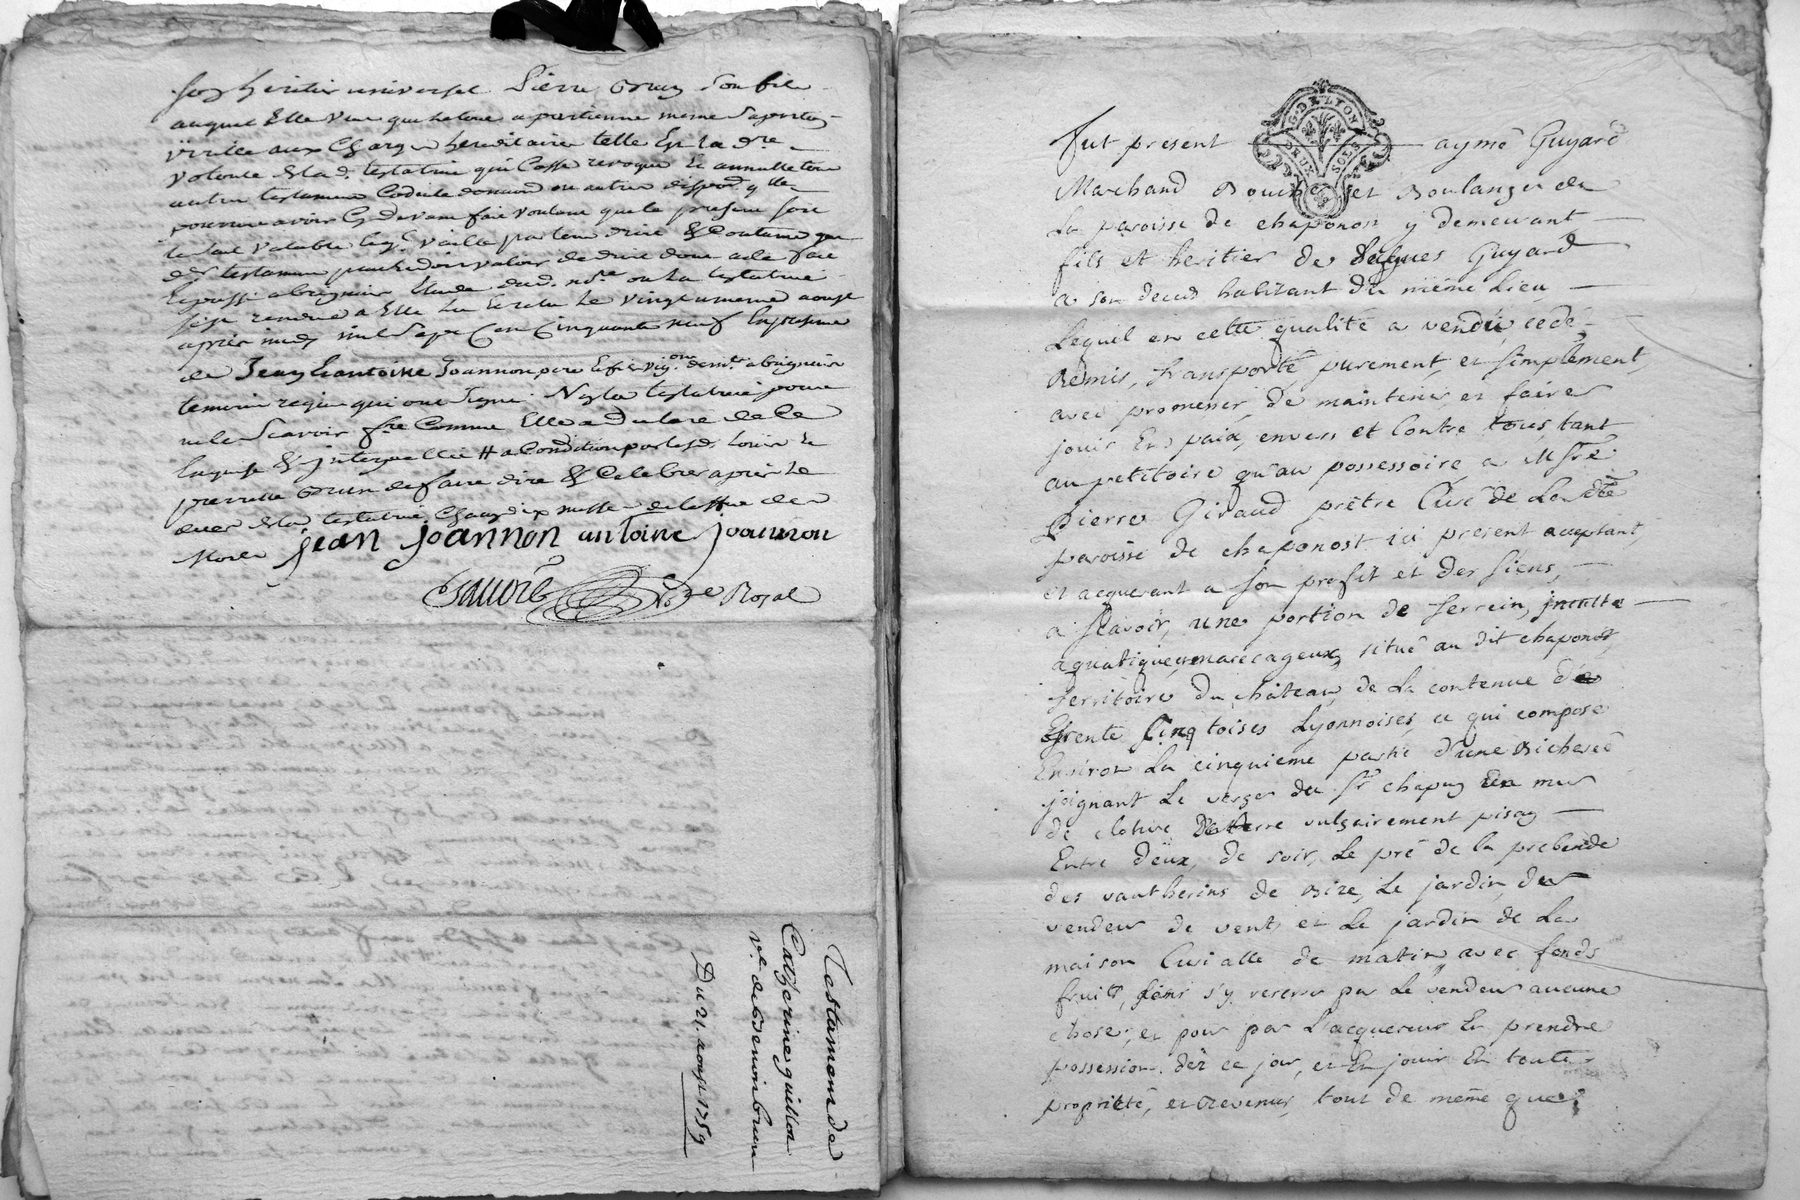 heritier universel Pierre brun son fils
auquel Elle veut
aux Charges hereditaires telle Est la dre
volonté de lad. testatrice qui Casse revoque Et annulle tous
autres testaments Codicile donation ou autres
pourroit avoir Cy devant fait voulant que le present soit
le seul valable vaille par tous droit Et Coutume que
testament peut Et doit valoir de droit donc acte fait
Et passé a brignais Etude dud. nore ou la testatrice
s'est rendue a Elle lu Et relu le vingt unieme aoust
après midy mil Sept Cent Cinquante neuf En presence
de Jean Et antoine Joannon pere Et fils vigons demts a brignais
temoins requis qui ont signé. Non la testatrice pour
ne le Scavoir fre Comme Elle a declaré de Ce
Enquise Et Interpellée # a Condition par lesd. louis Et
pierrette brun de faire dire Et Celebrer apres le
deces de la testatrice Chacun dix messes de la Messe des
Morts jean joannon antoine joannon
Nore Royal
Testament de
Catherine guillon
ve. de benoin brun
Du 21. aoust 1759
G. DE LYON
DEUX SOLS
Fut present aymé Guyard
Marchand Boucher et Boulanger de
La paroisse de chaponost y demeurant
fils et heritier de Jacques Guyard
a son deces habitant du même Lieu
Lequel en cette qualité a vendu, cedé,
Remis, transporté, purement, et simplement,
avec promesses, de maintenir, et faire
jouir En paix, envers et Contre tous, tant
au petitoire qu'au possessoire a Msre
Pierre Giraud prêtre Curé de La dte
paroisse de chaponost ici present acceptant,
et acquerant a son profit et des siens,
a scavoir, une portion de terrein, inculte
aquatique, et marecageux, situé au dit chaponost,
territoire du château, de La contenue de
trente Cinq toises Lyonnoises, ce qui compose
Environ La cinquieme partie d'une Bicherée
joignant Le verger du Sr chapuy un mur
de cloture De terre vulgairement pisay
Entre deux, de soir, Le pré de la prebende
des vautherins de Bize, Le jardin, du
vendeur de vent, et Le jardin de La
maison Curialle de matin, avec fonds
fruits, sans s'y reserver par Le vendeur aucune
chose, et pour par L'acquereur En prendre
possession dez ce jour, et En jouir En toute
proprieté, et Revenus, tout de même que